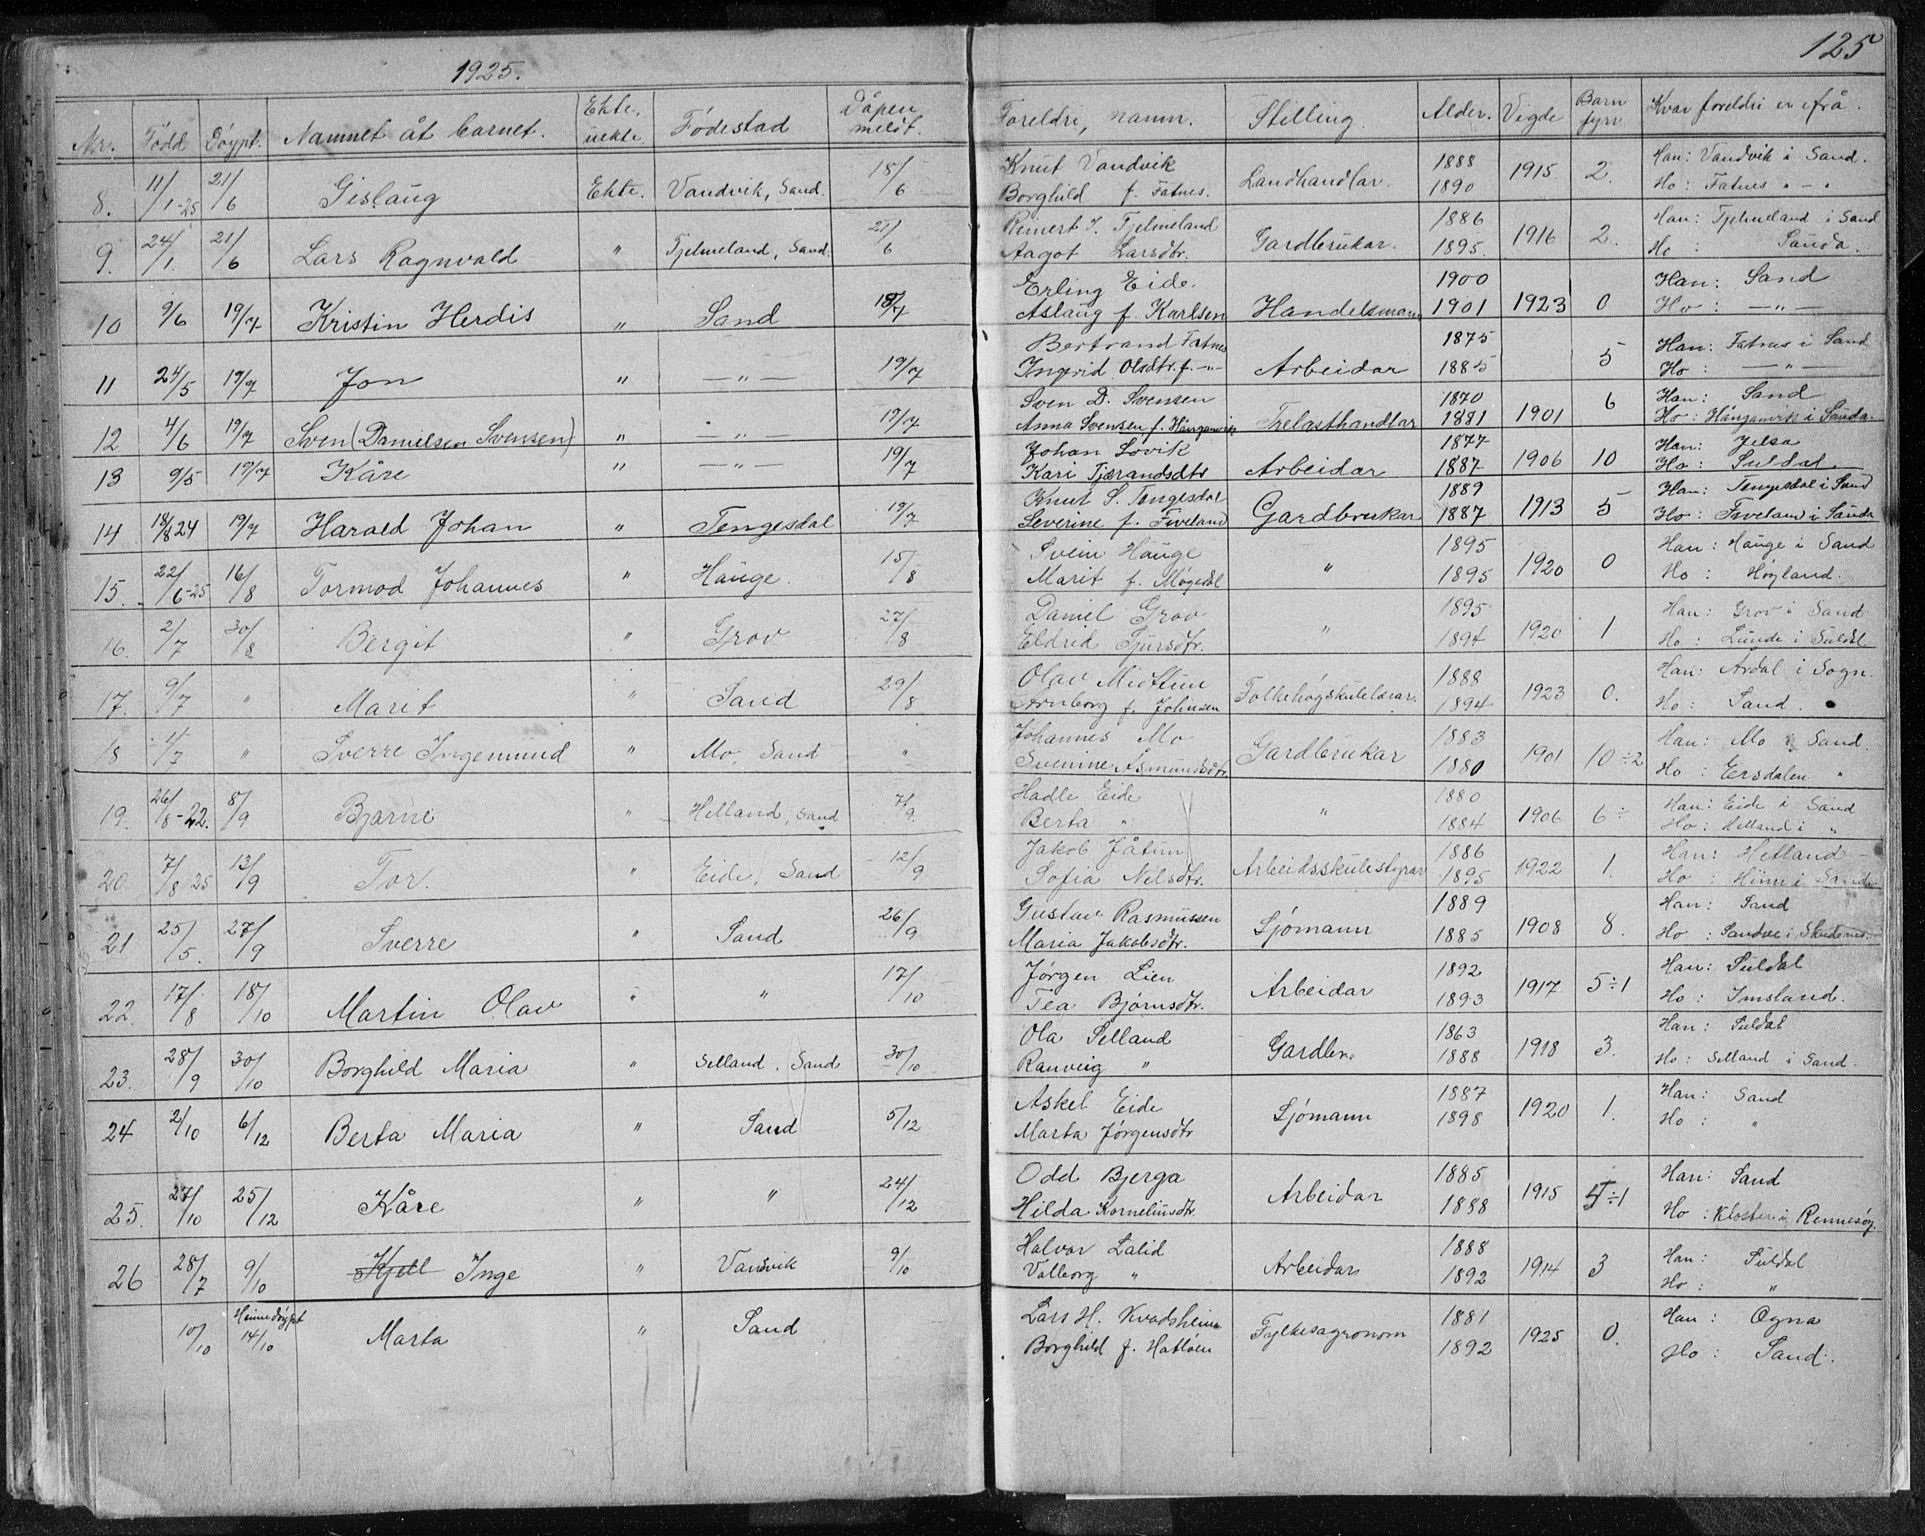 1925.
125
Nr. Född Döypt. Namnet åt barnet. Ekte, uekte Födestad Dåpen meldt. Foreldri, namn. Stilling. Alder. Vigde Barn fyrr. Kvar foreldri er ifrå.
8. 11/1-25 21/6 Gislaug Ekte. Vandvik, Sand. 18/6 Knut Vandvik Landhandlar. 1888 1915. 2. Han: Vandvik i Sand.
Borghild f. Fatnes. 1890 Ho: Fatnes " - "
9. 24/1. 21/6 Lars Ragnvald " Tjelmeland, Sand. 21/6 Reinert J. Tjelmeland Gardbrukar. 1886 1916 2. Han: Tjelmeland i Sand
Aagot Larsdtr. 1895. Ho : Sauda.
10 9/6 19/7 Kristin Herdis " Sand 18/7 Erling Eide. Handelsmann 1900 1923 0 Han: Sand
Aslaug f. Karlsen 1901 Ho : — " —
11 24/5 19/7 Jon " — " — 19/7 Bertrand Fatnes Arbeidar 1875 5 Han: Fatnes i Sand
Ingerid Olsdtr. f. - " - 1885 Ho : — " —
12 4/6 19/7 Sven (Danielsen Svensen) " " 19/7 Sven D. Svensen Trelasthandlar 1870 1901 6 Han: Sand
Anna Svensen f. 1881 Ho: i Sauda.
13 9/5 19/7 Kåre " — " — 19/7 Johan Lovik Arbeidar 1877 1906 10 Han: Jelsa
Kari Tjærandsdtr 1887 Ho: Suldal
14 18/8 24 19/7 Harald Johan " Tengesdal 19/7 Knut S. Tengesdal Gardbrukar 1889 1913 5 Han: Tengesdal i Sand
Severine f. Fiveland 1887 Ho: Fiveland i Sauda
15. 22/6-25 16/8 Tormod Johannes " Hauge. 15/8 Svein Hauge " 1895 1920 0 Han: Hauge i Sand
Marit f. Møgedal 1895 Ho : Høgland.
16. 2/7 30/8 Bergit " Grov 27/8 Daniel Grov " 1895 1920 1 Han: Grov i Sand
Eldrid Sjursdtr. 1894 Ho: Lunde i Suldal
17. 9/7 " Marit " Sand 29/8 Olav Midttun Folkehøgskulelærar. 1888 1923 0. Han: Ardal i Sogn.
Arnborg f. Johnsen 1894 Ho: Sand.
18 /7 " Sverre Ingemund " Mo, Sand " Johannes Mo Gardbrukar 1883 1901 10÷2 Han: Mo i Sand.
Svenine Asmundsdtr. 1880 Ho: Ersdalen "
19. 26/8-22. 8/9 Bjarne " Helland, Sand 7/9. Hadle Eide " 1880 1906 6÷ Han: Eide i Sand
Berta " 1884 Ho: Helland i "
20. 7/8-25 13/9 Tor. " Eide, Sand 12/9 Jakob Jåtun Arbeidsskulestyrar 1886 1922 1. Han: Hetland
Sofia Nilsdtr. 1895 Ho : i Sand
21 25/5. 27/9 Sverre " Sand 26/9 Gustav Rasmussen Sjømann 1889 1908 8. Han: Sand
Maria Jakobsdtr. 1885 Ho : Sandve i Skudenes
22. 17/8 18/10 Martin Olav " " 17/10 Jørgen Lien Arbeidar 1892 1917 5÷1 Han: Suldal
Tea Bjørnsdtr. 1893 Ho: Imsland.
23. 28/9 30/10 Borghild Maria " Selland, Sand 30/10 Ola Selland Gardbr. 1863 1918 3. Han: Suldal
Ranveig " 1888 Ho: Selland i Sand.
24 2/10 6/12 Berta Maria " Sand 5/12 Askel Eide Sjømann 1887 1920 1. Han: Sand
Marta Jørgensdtr 1898 Ho : "
25. 27/10 25/12 Kåre " " 24/12 Odd Bjerga Arbeidar 1885 1915 5÷1 Han: Sand
Hilda Korneliusdtr. 1888 Ho : Kloster i Rennesøy.
26 28/7 9/10 Kjell Inge " Vandvik 9/10 Halvor Lalid Arbeidar 1888 1914 3 Han: Suldal
Valborg " 1892 Ho: "
10/10 Heimedöypt 14/10 Marta " Sand Lars H. Kvadsheim Fylkesagronom 1881 1925 0. Han: Ogna
Borghild f. Hatløen 1892 Ho : Sand.